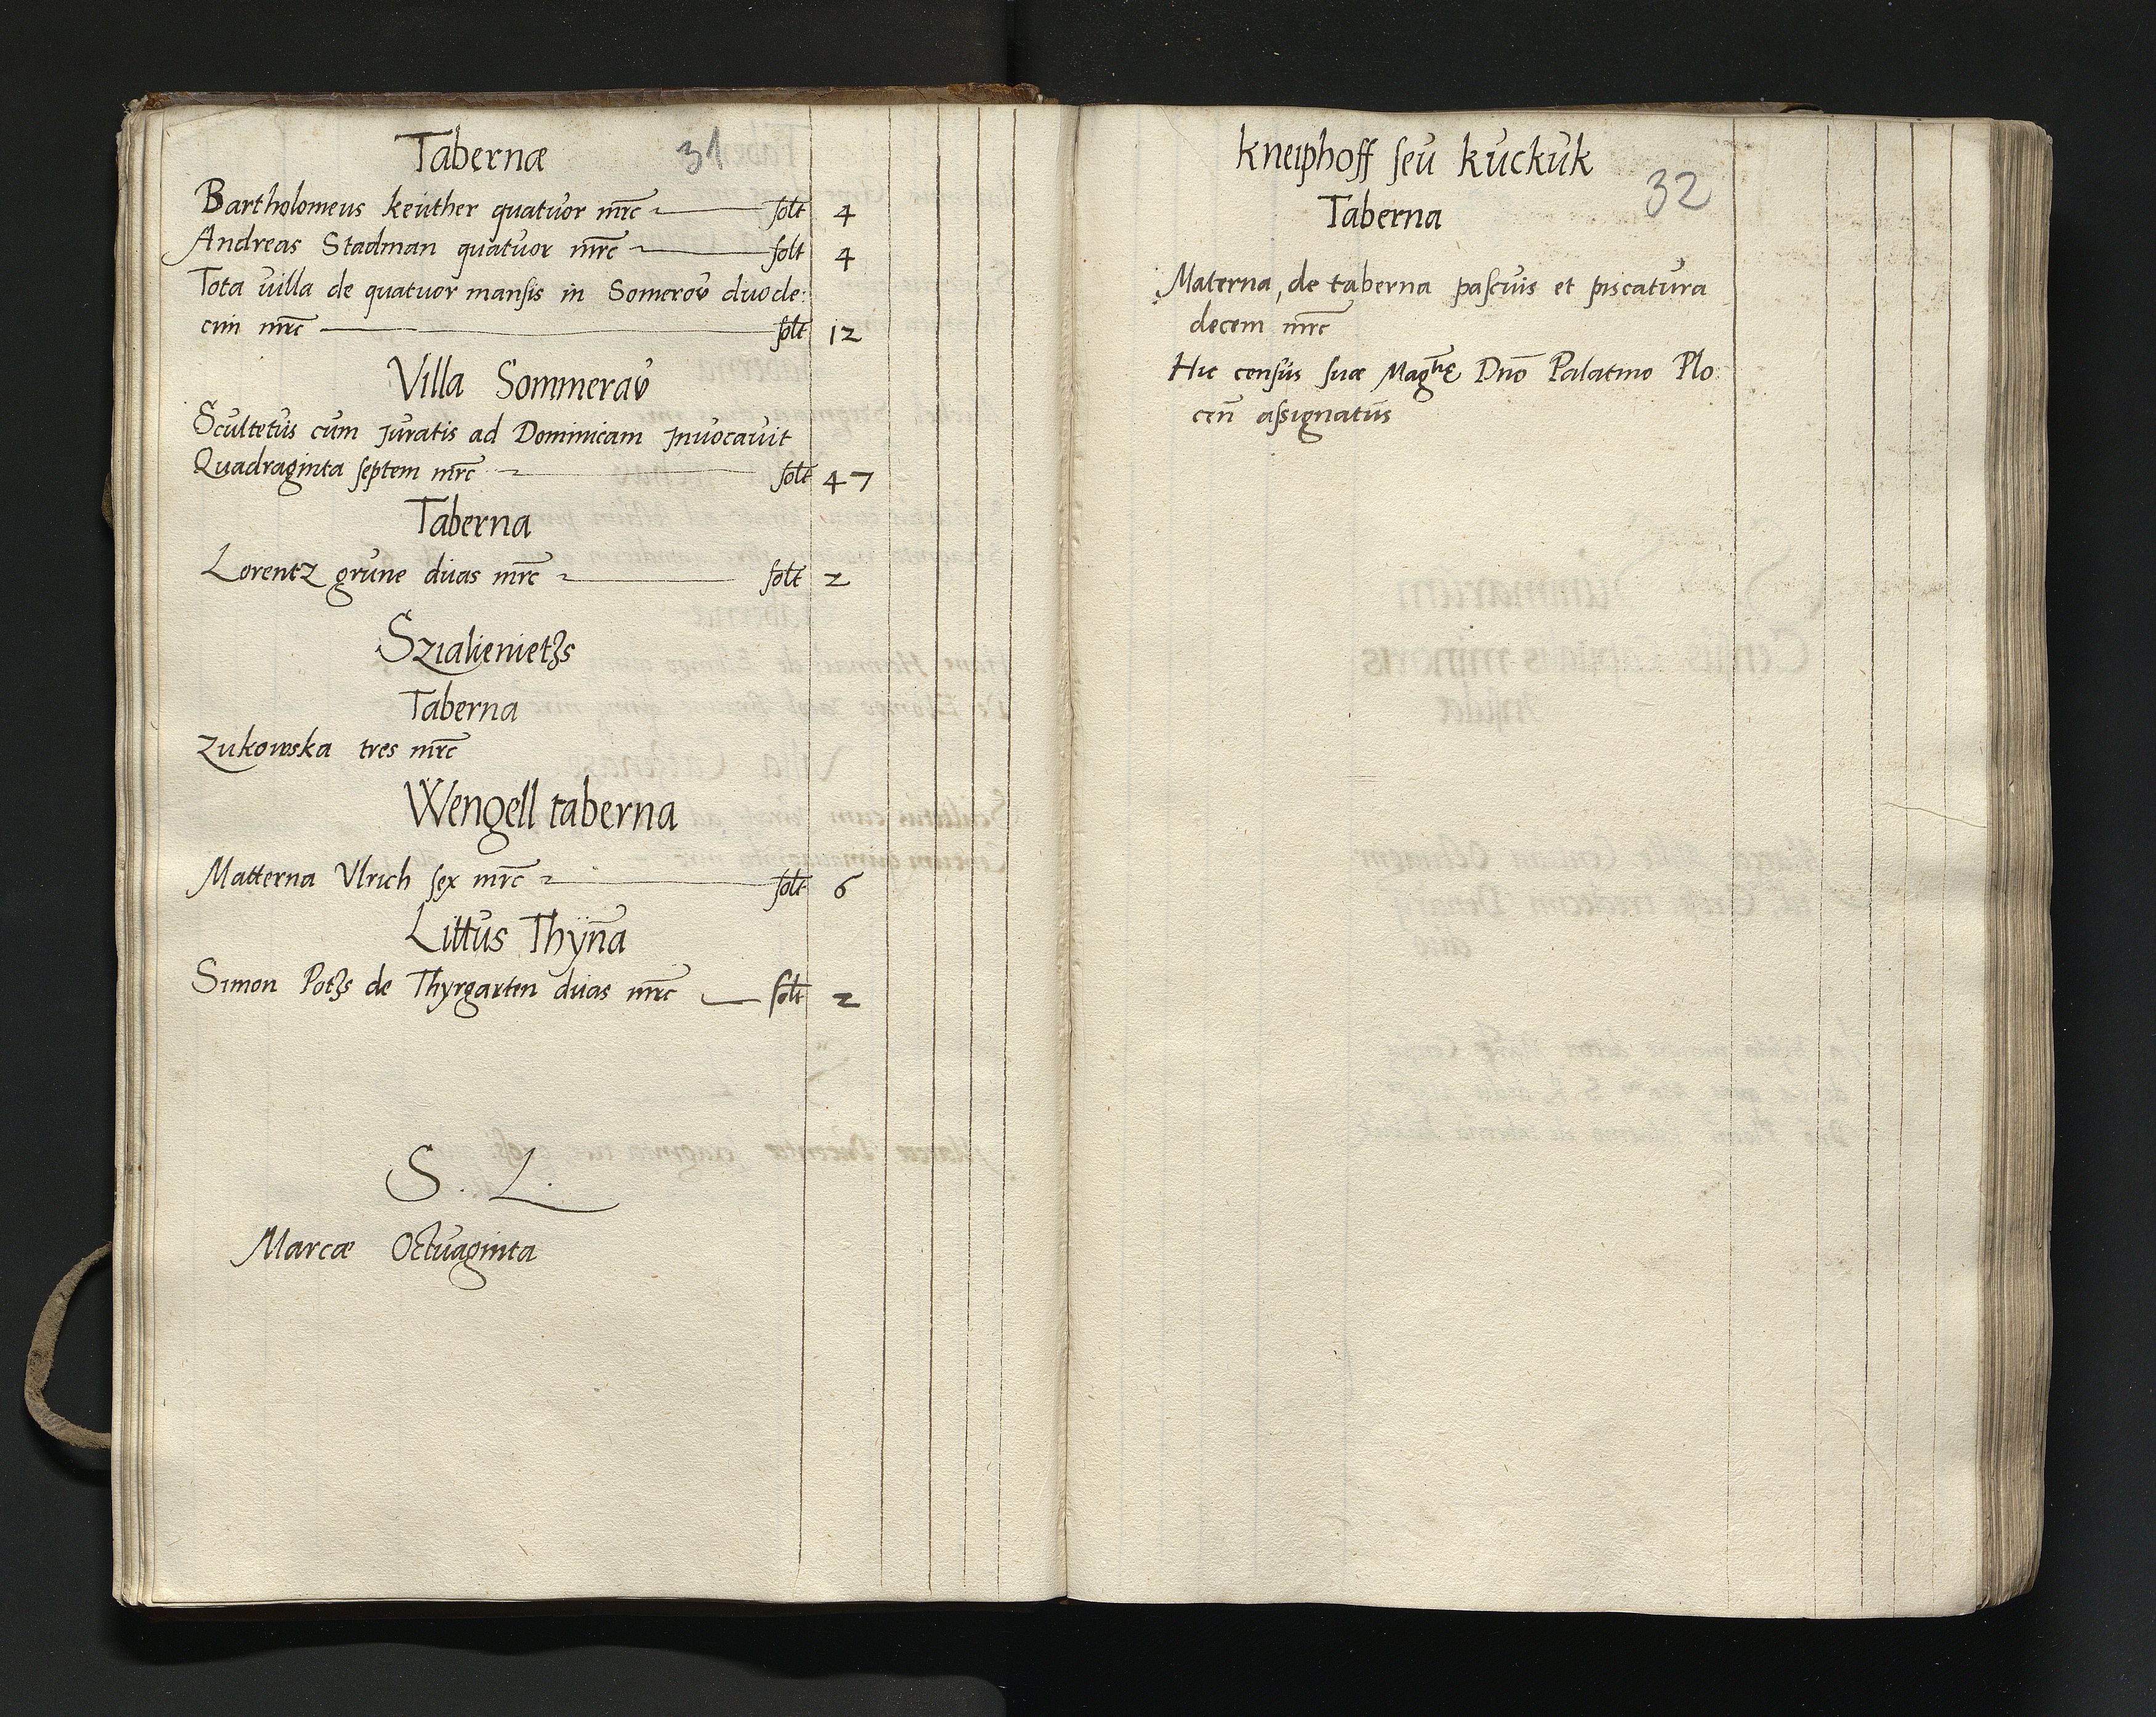 Tabernæ 31
Bartholomeus Keuther quatuor mrc solt 4
Andreas Stadman quatuor mrc solt 4
Tota villa de quatuor mansis in Somerov duode:
cim mrc solt 12
Villa Sommerav
Scultetus cum Juratis ad Dominicam Jnvocavit
Quadraginta septem mrc solt 47
Taberna
Lorentz grune duas mrc solt 2
Szialienietzs
Taberna
Zukowska tres mrc
Wengell taberna
Matterna Vlrich sex mrc solt 6
Littus Thÿna
Simon Potzs de Thyrgarten duas mrc solt 2
S. L.
Marcæ Octuaginta
Kneiphoff seu Kuckuk
32
Taberna
Materna, de taberna pascuis et piscatura
decem mrc
Hic census suæ Dno Palatino Plo
cen assignatus